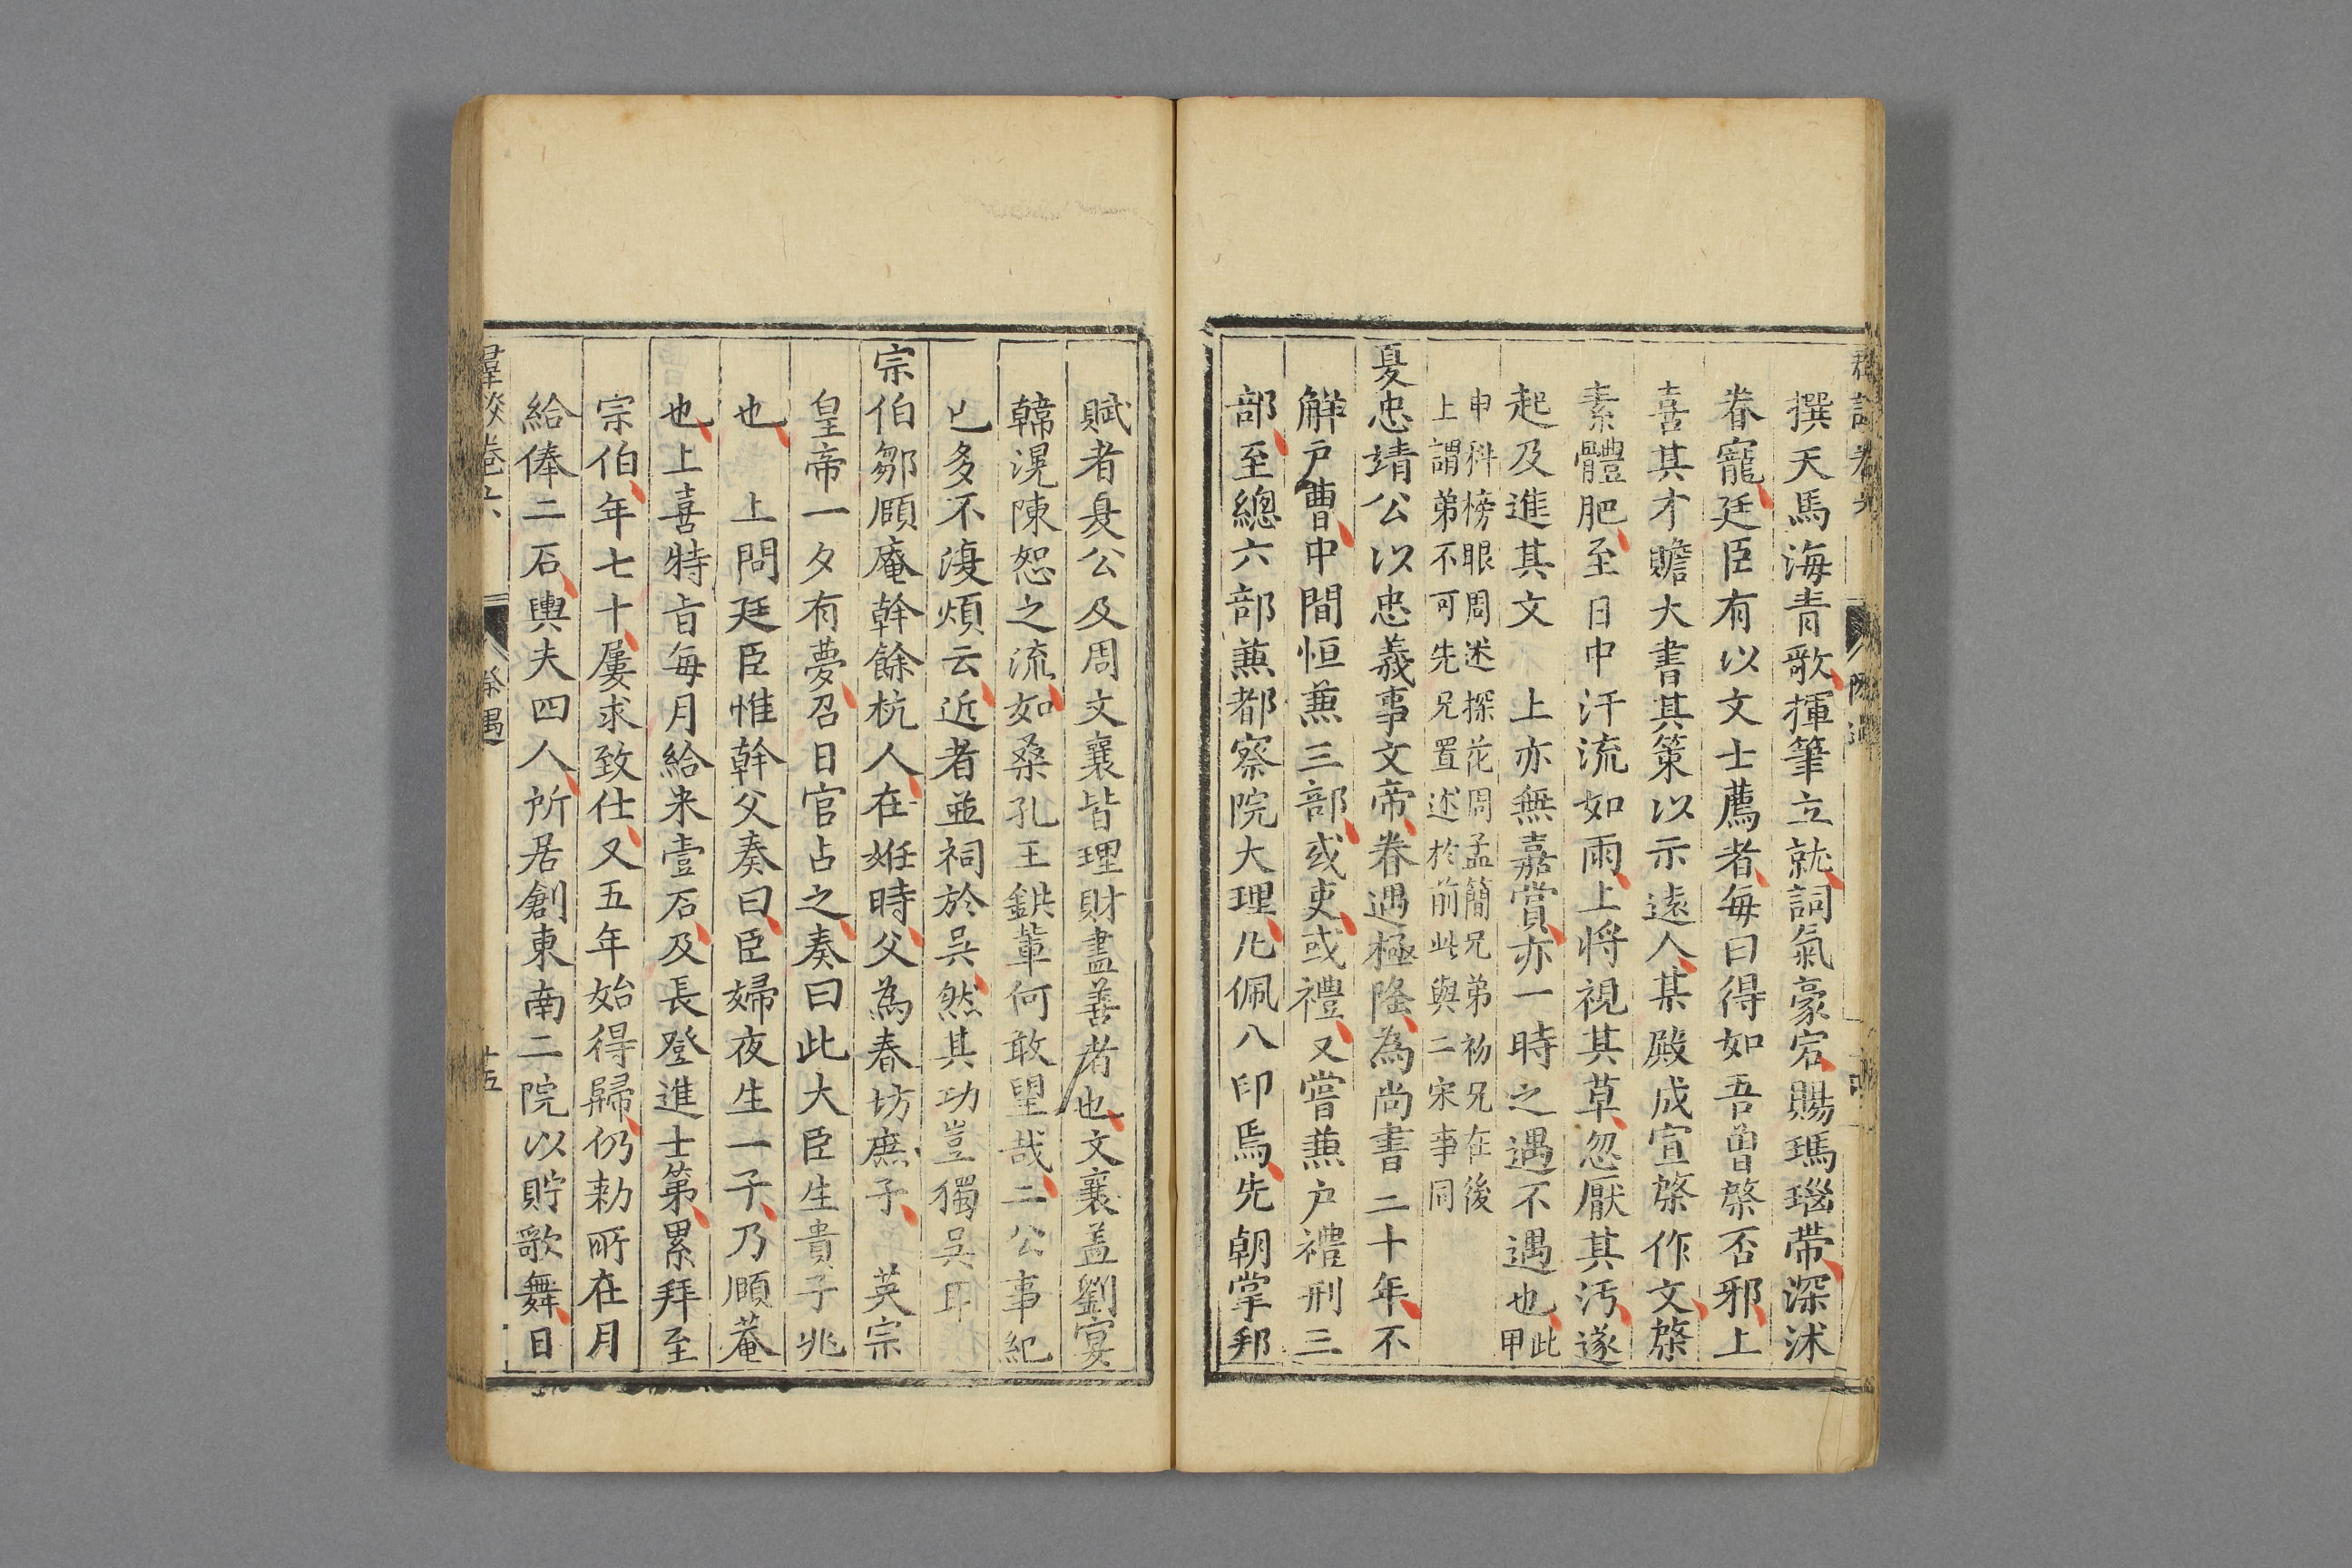 撰天馬海青歌揮筆立就詞氣豪宕賜瑪瑙帶深沭
眷寵廷臣有以文士薦者每曰得如吾曾棨否邪上
喜其才贍大書其策以示遠人某殿成宣棨作文棨
素體肥至日中汗流如雨上将視其草忽厭其汚遂
起及進其文 上亦無嘉賞亦一時之遇不遇也此甲
申科榜眼周述探花周孟簡兄弟初兄在後
上謂弟不可先兄置述於前此與二宋事同
夏忠靖公以忠義事文帝眷遇極隆為尚書二十年不
觧戸曹中間恒蕪三部或吏或禮又嘗蕪戸禮刑三
部至總六部蕪都察院大理凡佩八印焉先朝掌邦
賦者夏公及周文襄皆理財盡善者也文襄盖劉宴
韓滉陳恕之流如桑孔王鉷軰何敢望哉二公事紀
已多不復煩云近者並祠於吳然其功豈獨吳耶
宗伯鄒頤庵幹餘杭人在姙時父為春坊庶子 英宗
皇帝一夕有夢召日官占之奏曰此大臣生貴子兆
也 上問廷臣惟幹父奏曰臣婦夜生一子乃頤菴
也上喜特旨每月給米壹石及長登進士第累拜至
宗伯年七十屢求致仕又五年始得歸仍勑所在月
給俸二石輿夫四人所居創東南二院以貯歌舞日
羣談卷六 榮遇 十五